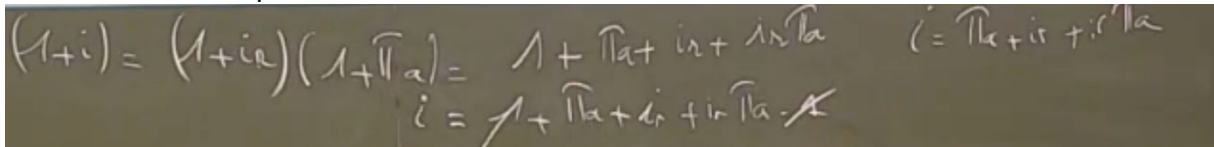 (1+i) = (1+ir)(1+πa) = 1 + πa + ir + irπa i = πa + ir + irπa
i = 1 + πa + ir + ir πa - 1